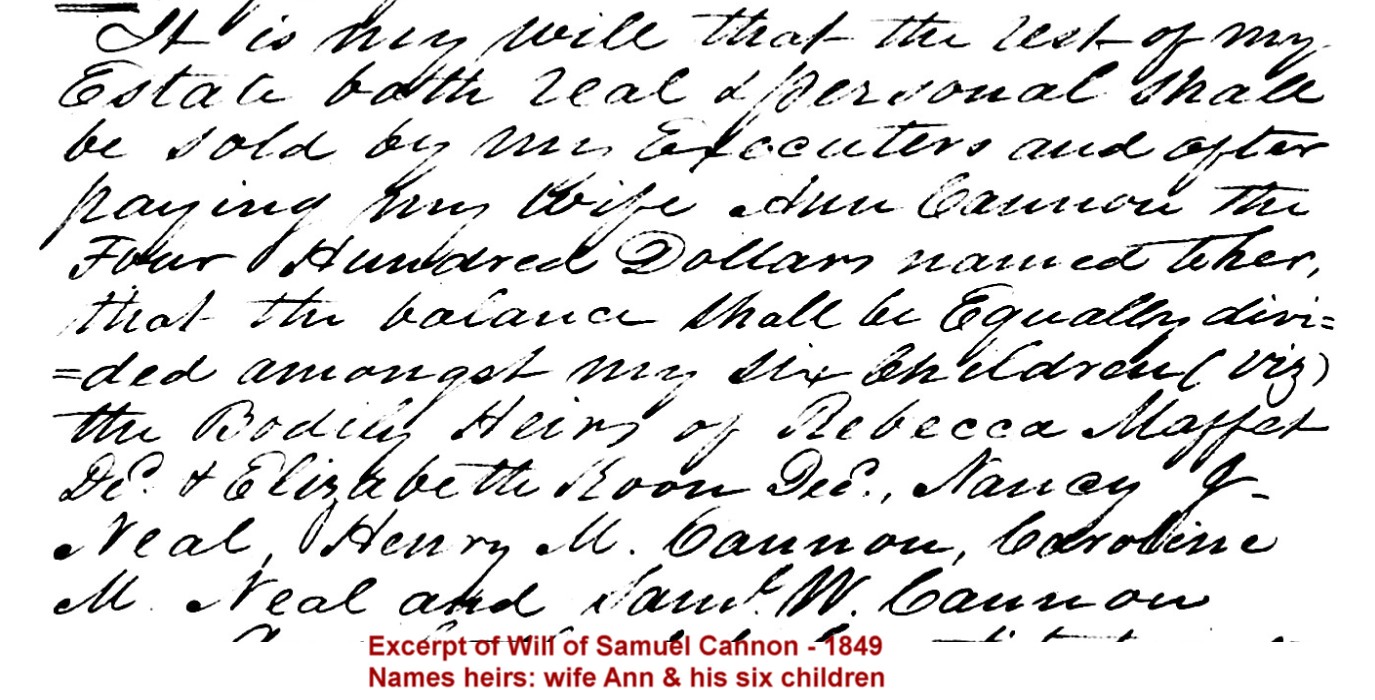 It is my will that the rest of my
Estate both real & personal shall
be sold by my Executers and after
paying my Wife Ann Cannon the
Four Hundred Dollars named to her,
that the balance shall be Equally divi=
=ded amongst my six Children (viz)
the Bodily Heirs of Rebecca Maffet
Decd. & Elizabeth Koon Decd., Nancy J-
Neal, Henry M. Cannon, Caroline
M. Neal and Saml. W. Cannon
Excerpt of Will of Samuel Cannon - 1849
Names heirs: wife Ann & his six children